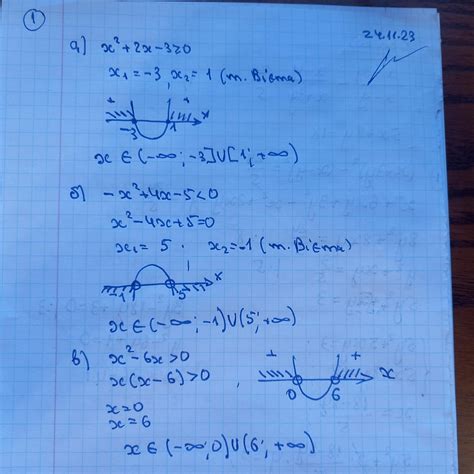 1
24.11.23
а) x²+2x-3≥0
x₁=-3, x₂=1 (т. Вієта)
+ + x
-3 1
x ∈ (-∞; -3] U [1; +∞)
б) -x²+4x-5<0
x²-4x+5=0
x₁= 5 x₂=-1 (т. Вієта)
x
-1 5
x ∈ (-∞; -1) U (5; +∞)
в) x²-6x>0
x(x-6)>0
+ + x
0 6
x=0
x=6
x ∈ (-∞; 0) U (6; +∞)